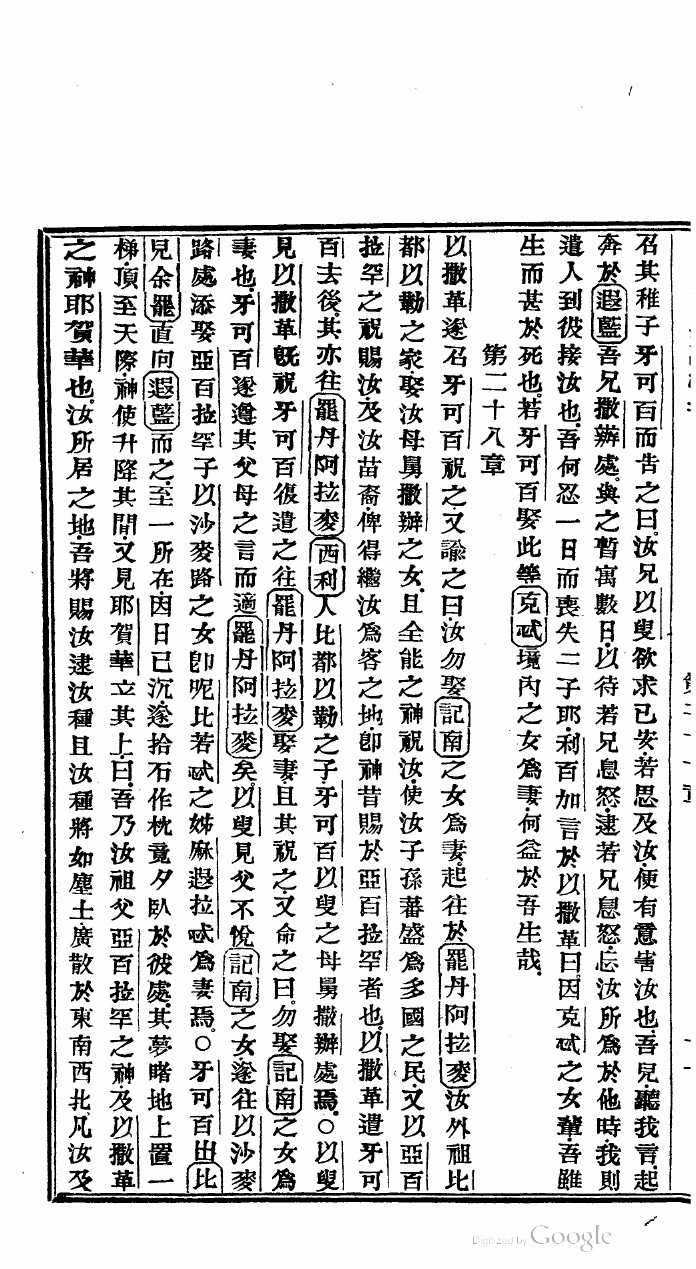 召其稚子牙可百而告之曰。汝兄以叟欲求己安。若思及汝。便有意害汝也。吾兒聽我言。起
奔於遐藍吾兄撒辦處。與之暫寓數日。以待若兄息怒。逮若兄息怒。忘汝所爲於他時。我則
遣人到彼接汝也。吾何忍一日而喪失二子耶。利百加言於以撒革曰。因克忒之女輩。吾雖
生而甚於死也。若牙可百娶此等克忒境內之女爲妻。何益於吾生哉。
第二十八章
以撒革遂召牙可百祝之。又諭之曰。汝勿娶記南之女爲妻。起往於罷丹阿拉麥汝外祖比
都以勒之家。娶汝母舅撒辦之女。且全能之神祝汝。使汝子孫蕃盛爲多國之民。又以亞百
拉罕之祝賜汝。及汝苗裔。俾得繼汝爲客之地。卽神昔賜於亞百拉罕者也。以撒革遣牙可
百去後。其亦往罷丹阿拉麥西利人比都以勒之子。牙可百以叟之母舅撒辦處焉。○以叟
見以撒革旣祝牙可百。復遣之往罷丹阿拉麥娶妻。且其祝之。又命之曰。勿娶記南之女爲
妻也。牙可百遂遵其父母之言。而適罷丹阿拉麥矣。以叟見父不悅記南之女。遂往以沙麥
路處。添娶亞百拉罕子以沙麥路之女。卽呢比若忒之姊麻遐拉忒爲妻焉。○牙可百出比
見余罷直向遐藍而之。至一所在。因日已沉。遂拾石作枕。竟夕臥於彼處。其夢睹地上置一
梯。頂至天際。神使升降其間。又見耶賀華立其上。曰。吾乃汝祖父亞百拉罕之神。及以撒革
之神耶賀華也。汝所居之地。吾將賜汝逮汝種。且汝種將如塵土。廣散於東南西北。凡汝及
Digitized by Google